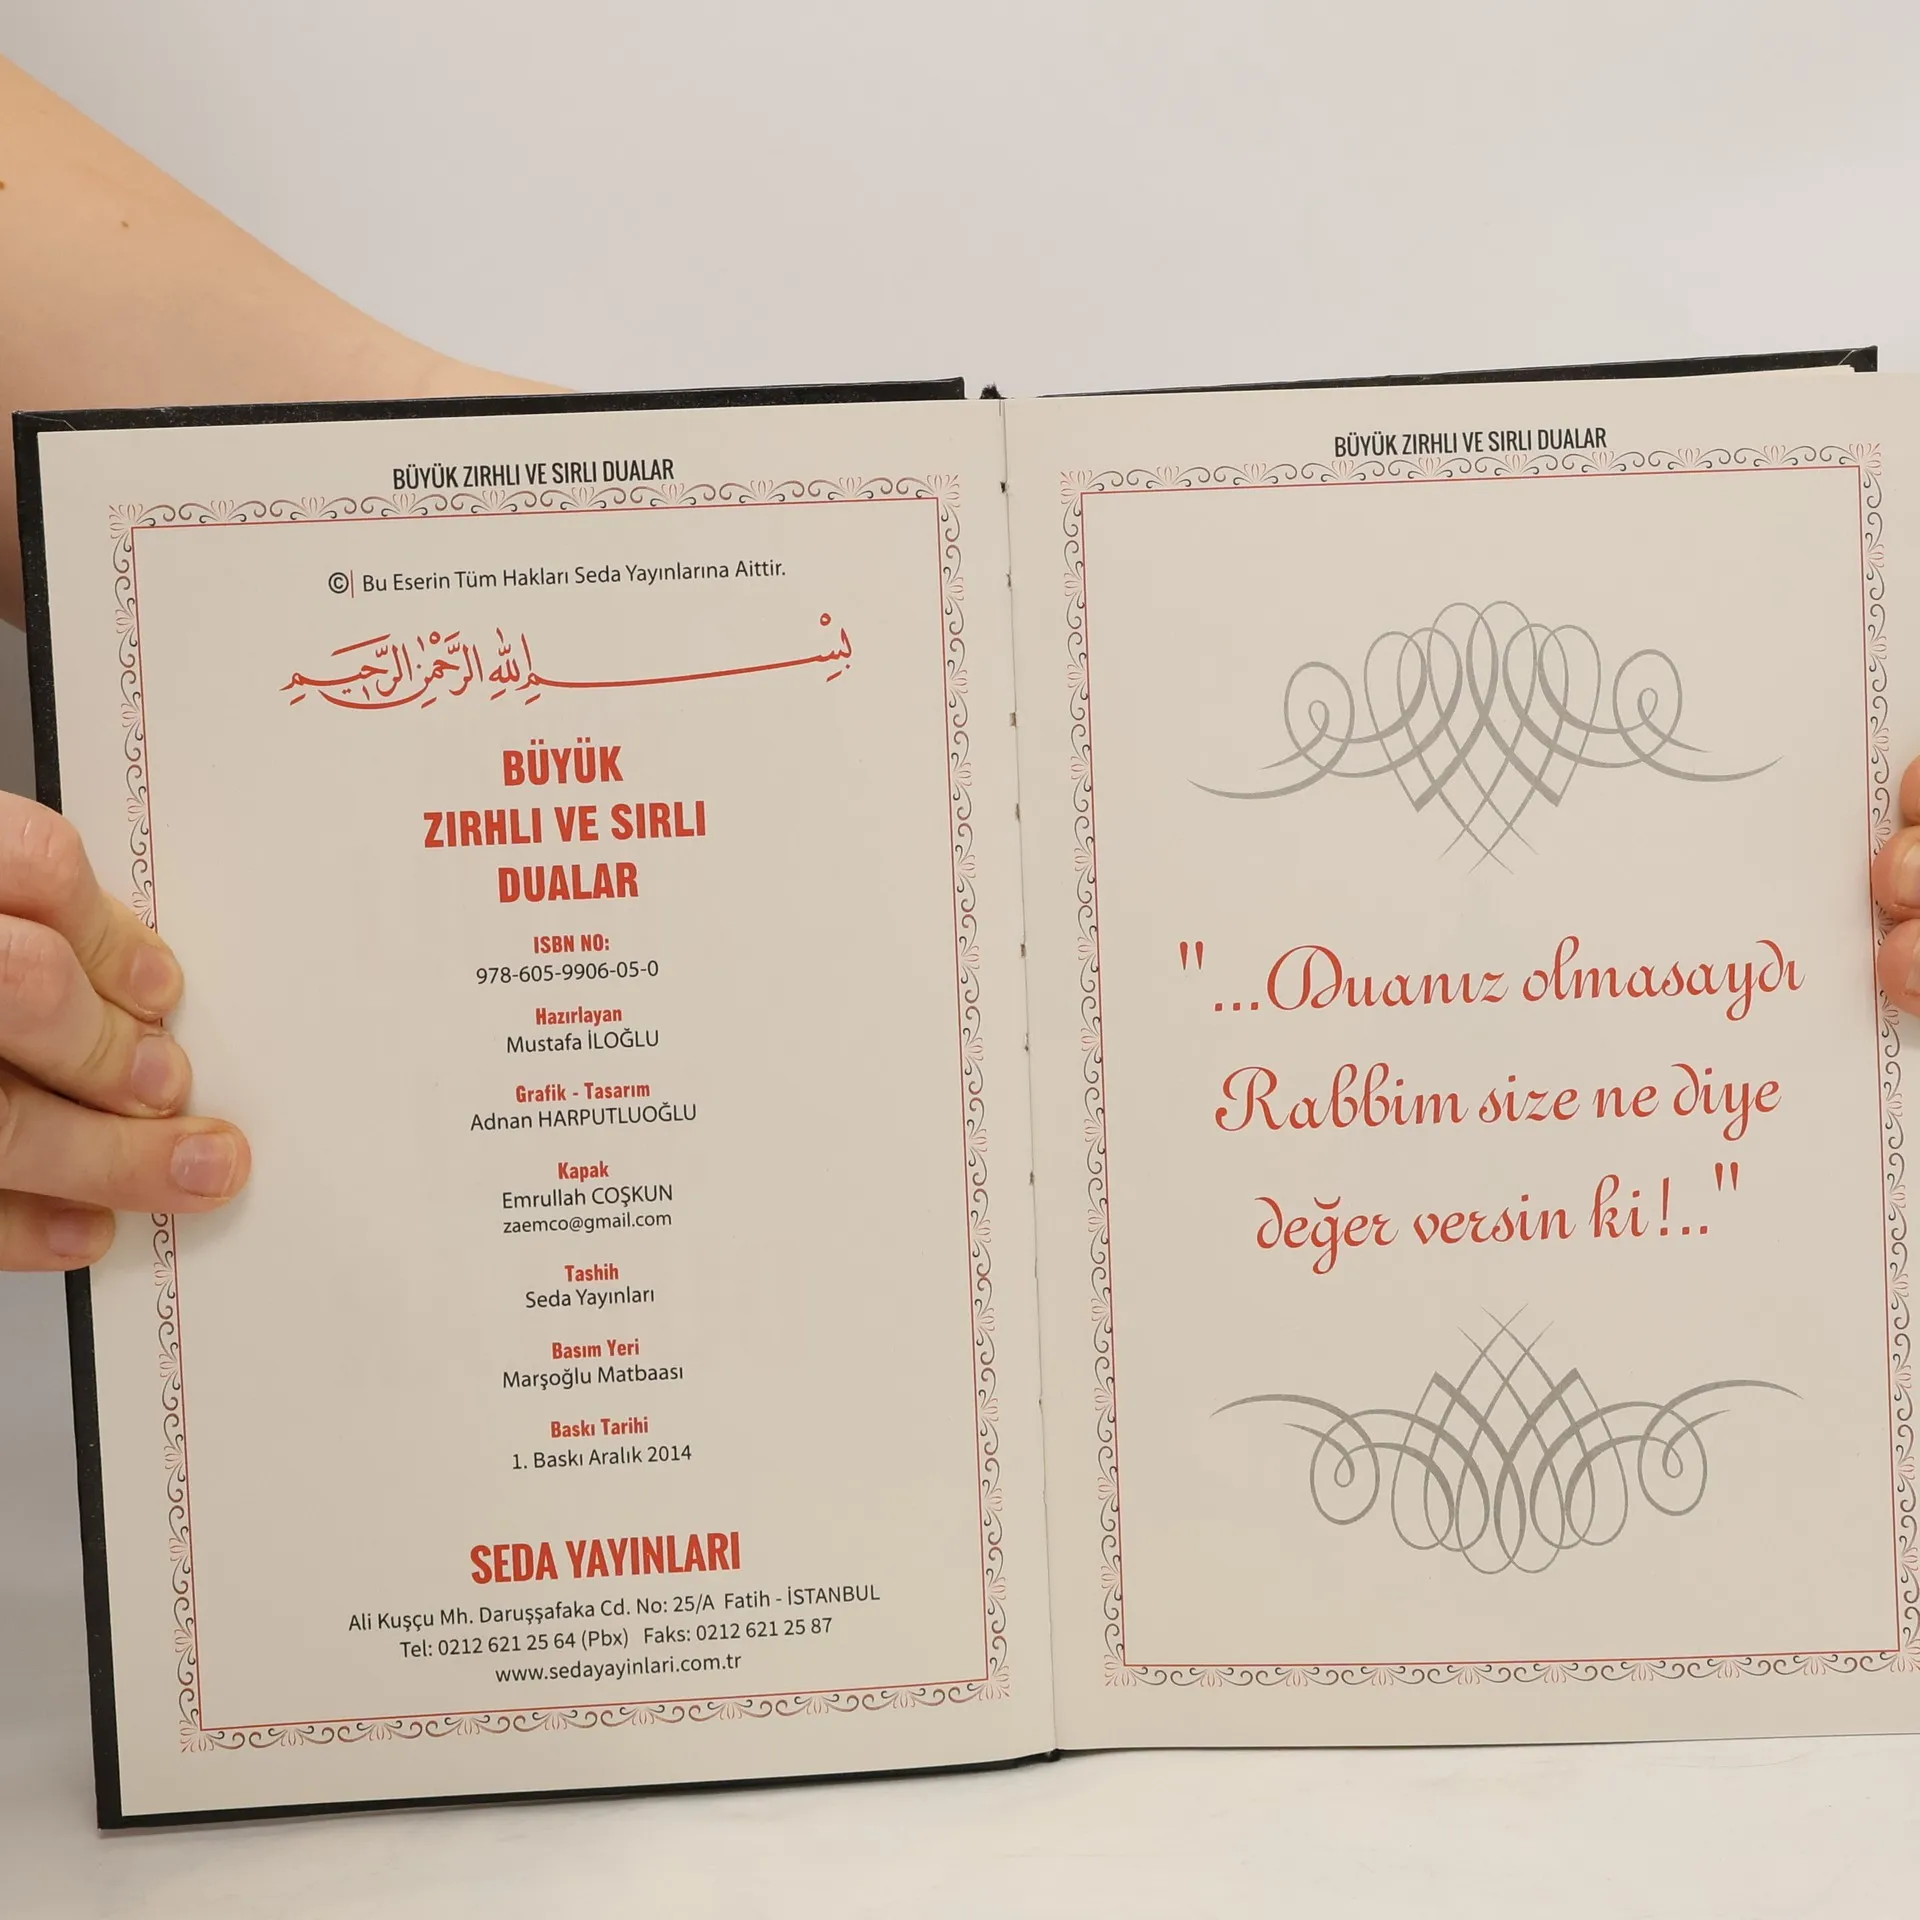 BÜYÜK ZIRHLI VE SIRLI DUALAR
© Bu Eserin Tüm Hakları Seda Yayınlarına Aittir.
بِسْمِ اللهِ الرَّحْمٰنِ الرَّحِيمِ
BÜYÜK
ZIRHLI VE SIRLI
DUALAR
ISBN NO:
978-605-9906-05-0
Hazırlayan
Mustafa İLOĞLU
Grafik - Tasarım
Adnan HARPUTLUOĞLU
Kapak
Emrullah COŞKUN
zaemco@gmail.com
Tashih
Seda Yayınları
Basım Yeri
Marşoğlu Matbaası
Baskı Tarihi
1. Baskı Aralık 2014
SEDA YAYINLARI
Ali Kuşçu Mh. Daruşşafaka Cd. No: 25/A Fatih - İSTANBUL
Tel: 0212 621 25 64 (Pbx) Faks: 0212 621 25 87
www.sedayayinlari.com.tr
BÜYÜK ZIRHLI VE SIRLI DUALAR
"...Duanız olmasaydı
Rabbim size ne diye
değer versin ki!.."